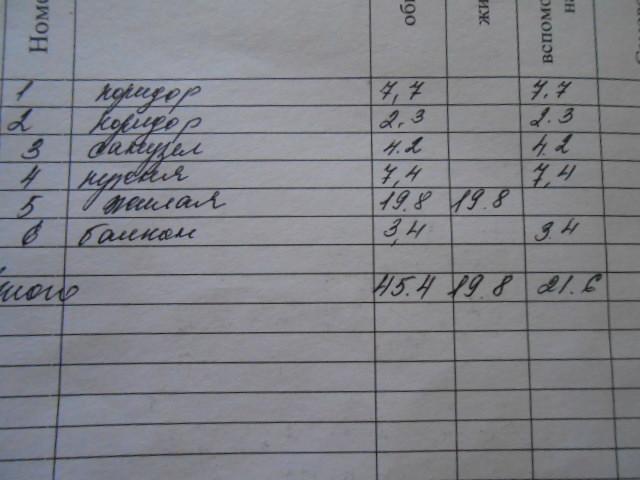 Номе об жи вспомо на
1 коридор 7,7 7.7
2 коридор 2.3 2.3
3 санузел 4.2 4.2
4 кухня 7,4 7,4
5 жилая 19.8 19.8
6 балкон 3,4 3.4
того 45.4 19.8 21.6